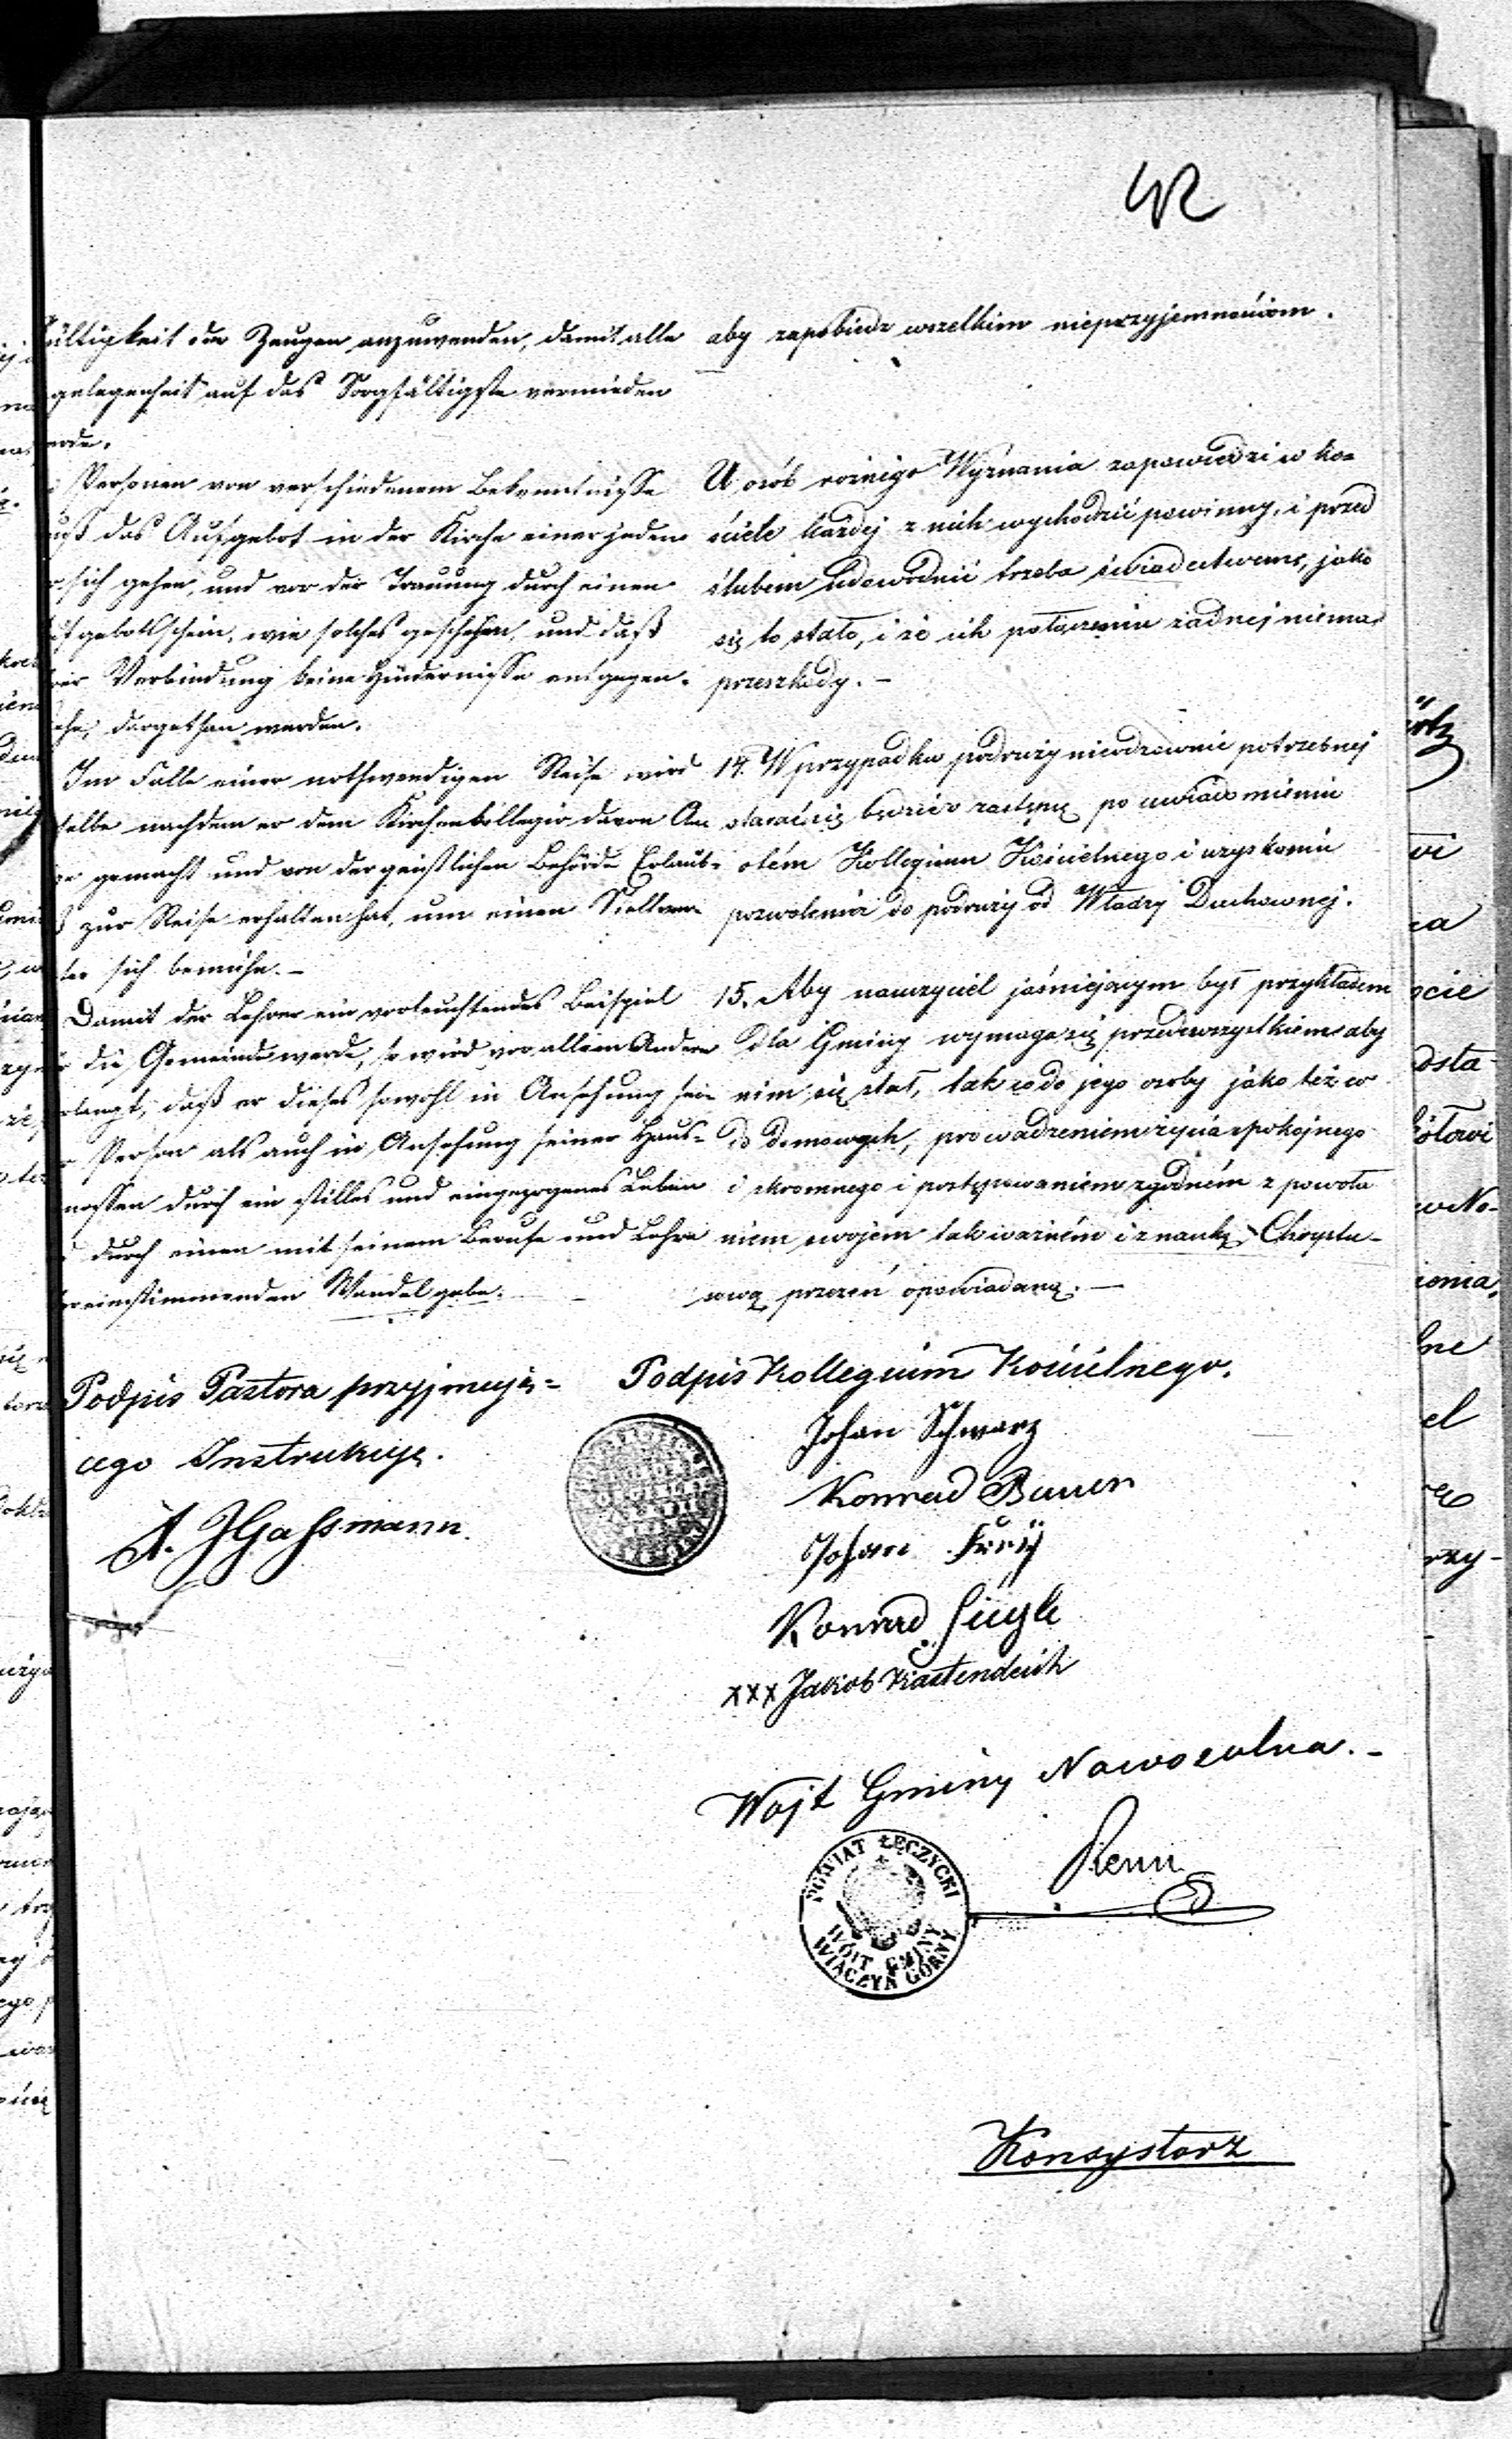 42
ültigkeit der Zeugen anzuwenden, damit alle
gelegenheit auf das Sorgfältigste vermieden
erde.
Personen von verschiedenem Bekenntnisse
uß das Aufgebot in der Kirche einer jeden
sich gehen, und vor der Trauung durch einen
fgebotsschein, wie solches geschehen, und daß
rer Verbindung keine Hindernisse entgegen-
ehe, dargethan werden.
Im Falle einer nothwendigen Reise wird
selbe nachdem er dem Kirchenkollegio davon An
ge gemacht und von der geistlichen Behörde Erlaub-
ß zur Reise erhalten hat, um einen Stellver-
ter sich bemühen.-
Damit der Lehrer ein vorleuchtendes Beispiel
r die Gemeinde werde, so wird vor allem Andern
rlangt, daß er dieses sowohl in Ansehung sein
r Person als auch in Ansehung seiner Haus-
nossen durch ein stilles und eingezogenes Leben
d durch einen mit seinem Berufe und Lehre
ereinstimmenden Wandel gebe.
aby zapobiedz wszelkim nieprzyjemnościom.
U osób rożnigo Wyznania zapowiedzi w ko-
ściele każdej z nich wychodzić powinny, i przed
ślubem udowodnić trzeba świadectwem, jako
się to stało, i że ich połączeniu żadnej niema
przeszkody.-
14. W przypadku podróży nieodzownie potrzebnej
starać się będzie o zastępcę po uwiadomieniu
otém Kollegium Kościelnego i uzyskaniu
pozwolenia do podróży od Władzy Duchownej.
15. Aby nauczyciel jaśniejącym był przykładem
dla Gminy wymaga się przedewszystkiem aby
nim się stał, tak co do jego osoby jako też co
do domowych, prowadzeniem życia spokojnego
i skromnego i postępowaniem zgodném z powoła
niem swojem tak ważném i z nauką Chrystu-
sową przezeń opowiadaną.-
Podpis Pastora przyjmują-
cego Instrukcyę.
A. J Gassmann
Podpis Kollegium Kościelnego.
Johan Schwarz
Konrad Bauer
Johan Freÿ
Konrad
xxx Jakob Kastendeich
Wójt Gminy Nowosolna.-
POWIAT ŁĘCZYCKI
WÓJT GMINY
WIĄCZYŃ GÓRNY
Konsystorz